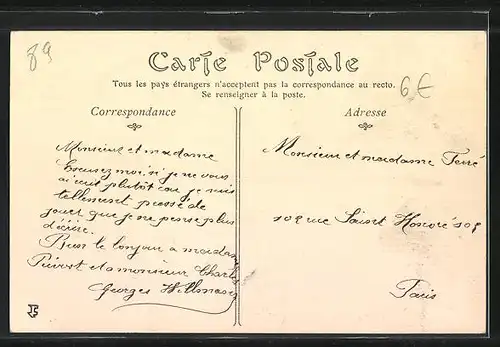 89
Carte Postale
Tous les pays étrangers n'acceptent pas la correspondance au recto.
Se renseigner à la poste.
6€
Correspondance
Adresse
Monsieur et madame
Excusez moi si je ne vous
ai écrit plutôt car je suis
tellement pressé de
jouer que je ne pense plus
d'écrire.
Bien le bonjour a madame
Prevost et a monsieur Charles
Georges
Monsieur et madame Ferré
108 rue Saint Honoré 108
Paris